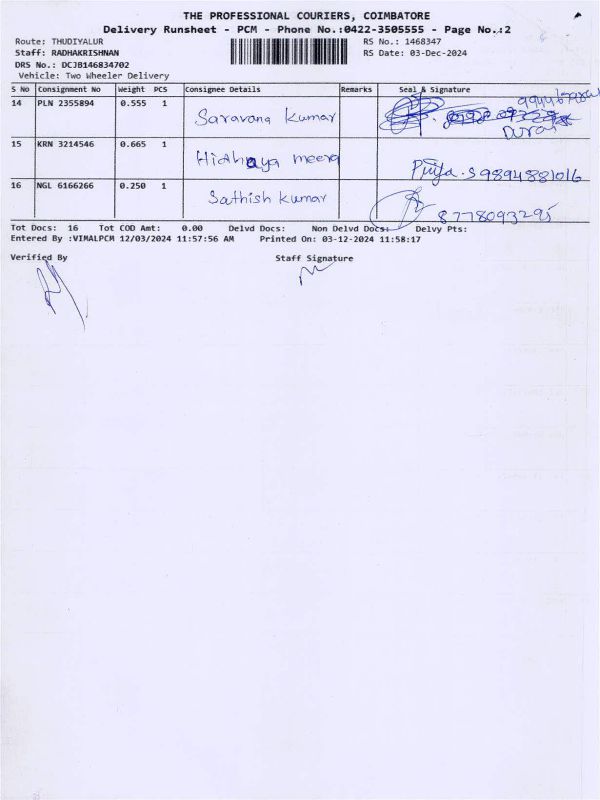 THE PROFESSIONAL COURIERS, COIMBATORE
Delivery Runsheet - PCM - Phone No.:0422-3505555 - Page No.:2
Route: THUDIYALUR RS No.: 1468347
Staff: RADHAKRISHNAN RS Date: 03-Dec-2024
DRS No.: DCJB146834702
Vehicle: Two Wheeler Delivery
S No Consignment No Weight PCS Consignee Details Remarks Seal & Signature
14 PLN 2355894 0.555 1 Saravana Kumar
Durai
15 KRN 3214546 0.665 1 Hidhaya meera Priya.S 9894881016
16 NGL 6166266 0.250 1 Sathish kumar 8778093295
Tot Docs: 16 Tot COD Amt: 0.00 Delvd Docs: Non Delvd Docs: Delvy Pts:
Entered By :VIMALPCM 12/03/2024 11:57:56 AM Printed On: 03-12-2024 11:58:17
Verified By Staff Signature